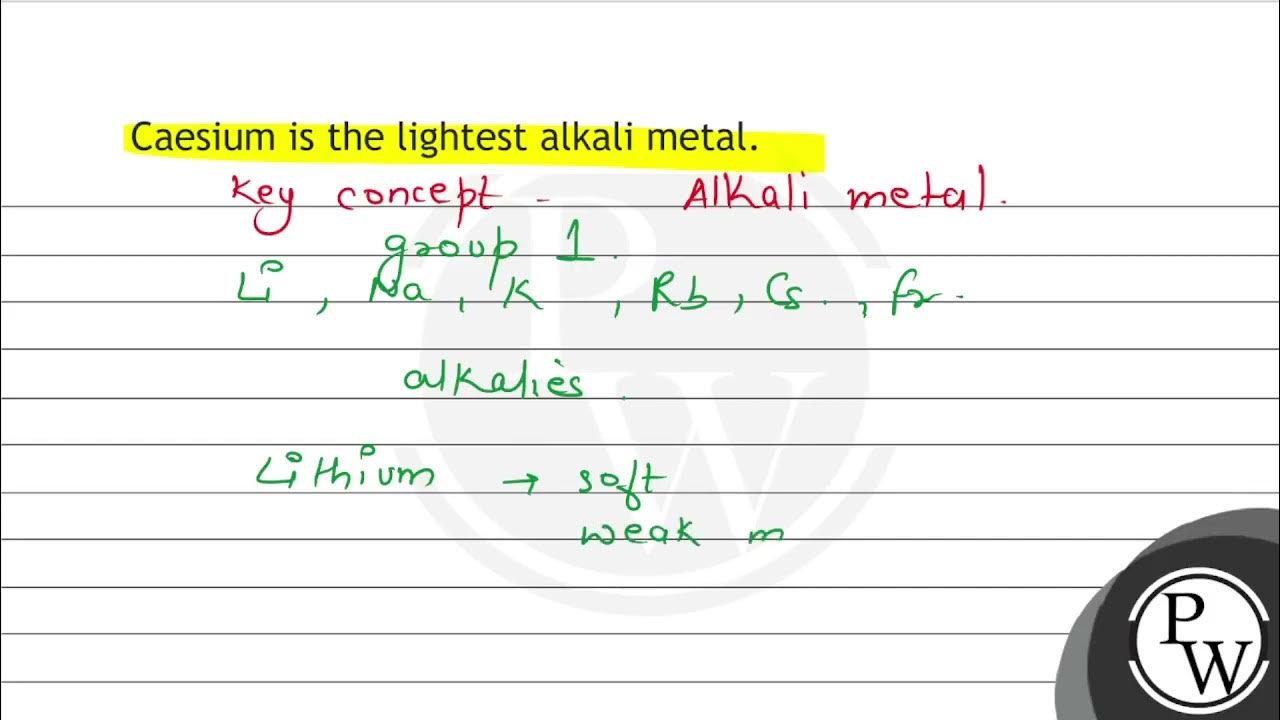 Caesium is the lightest alkali metal.
Key concept - Alkali metal.
group 1.
Li, Na, K, Rb, Cs., Fr.
alkalies.
Lithium → soft
weak m
PW
PW